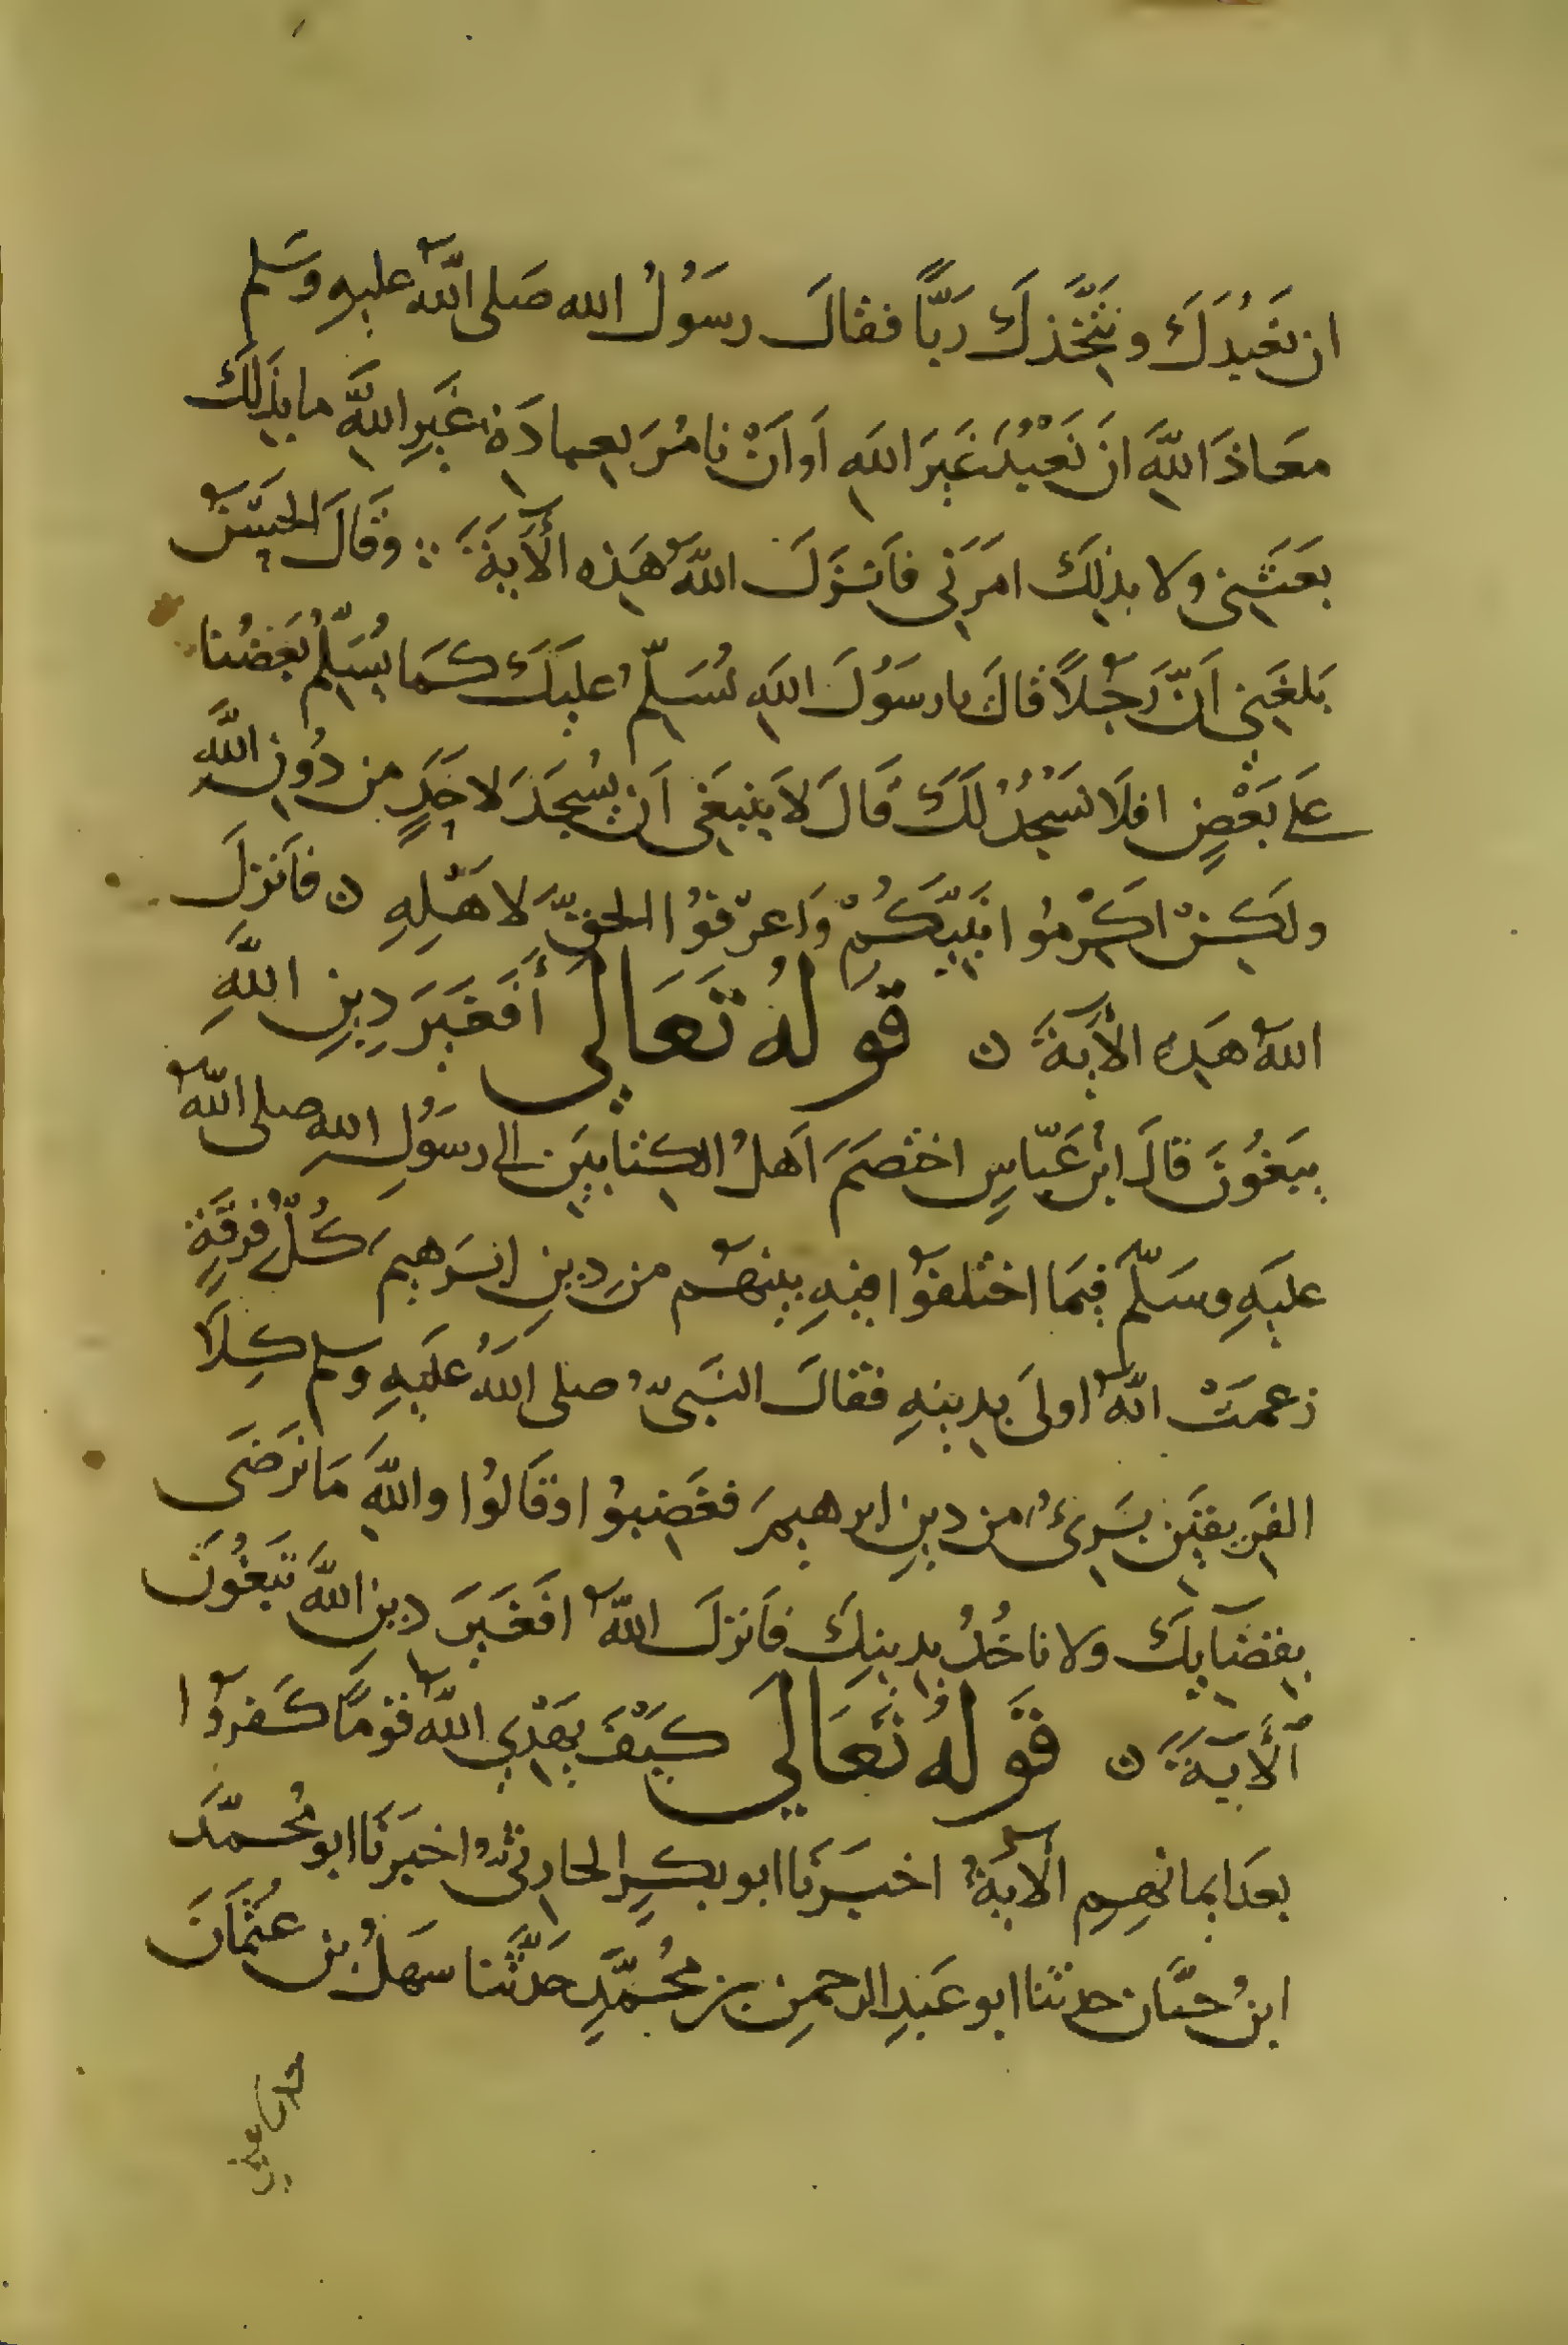 ان نَعْبُدَكَ ونَتَّخِذَكَ رَبًّا فقالَ رسَوُلُ الله صَلى اللَّهُ عليهِ وسَلم
معَاذَ اللَّهِ انَ نَعْبُدَ غَيرَ اللهِ اَو اَنْ نامُرَ بِعِبادَةِ غَيرِ اللَّهِ ما بذَلِكَ
بعَثَنِي ولا بذلِكَ امَرَنِي فاَنزَلَ اللَّهُ هَذِه الْآيَةَ وقَالَ الحسَنُ
بَلغَنِي اَنَّ رَجُلاً قالَ يا رسَوُلَ اللهِ نُسَلِّمُ عليكَ كمَا يُسَلِّمُ بَعضُنا
علَى بَعْضٍ افلَا نَسْجُدُ لَكَ قَالَ لاَ ينبَغِي اَن يُسجَدَ لاحَدٍ من دُونِ اللَّهِ
ولَكِنْ اكَرْمُوا نَبِيَّكُمْ وَاعرِفوُا الحقَّ لاهَلِهِ ن فاَنزلَ
اللهُ هَذِهِ الْآيَةَ ن قَولهُ تَعَالَى أَفَغَيَرَ دِينِ اللَّهِ
يبَغُونَ قالَ ابنُ عَبّاسٍ اختصَمَ اَهلُ الكِتابَيِن الى رسَوُلِ الله صلى اللَّهُ
عليَهِ وسَلّمَ فِيمَا اختلفوُا فيِهِ بينهَمُ من دِينِ ابرَهيمَ كُلُّ فِرقَةٍ
زعمَتْ انَّهُ اولىَ بِدِينِهِ فقالَ النَبيُّ صلى اللهُ عليَهِ وسلم كِلاَ
الفَرِيقيَن بَرِيءُ من دِينِ ابرهيمَ فغَضِبوُا وقَالوُا واللَّهِ مَا نَرضَى
بِقضَايِكَ ولا ناخُذُ بِدِينِكَ فاَنزلَ اللَّهُ افَغَيَرَ دِينِ اللَّهِ تبَغُونَ
الْآيَةَ ن قَولهُ تَعَالَى كَيْفَ يهَدِي اللَّهُ قوَمًا كَفَروُا
بعَدَ ايمانهِم الْآيَةُ اخبَرنَا ابو بكرٍ الحارِثيُّ اخبَرنَا ابو مُحمَّدَ
ابنُ حيَّان حدثنا ابو عَبدِ الرحمنِ بن مُحمَّدٍ حَدَّثنا سَهَلُ بنُ عثُمَانَ